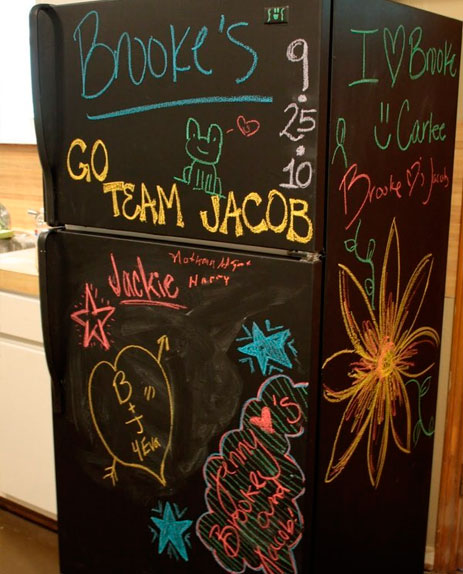 Brooke's
9
.
25
.
10
GO
TEAM JACOB
Jackie
Harry
B
+ J
4Eva
Jenny ♥'s
Brooke
and
Jacob!
I ♡ Brooke
Carlee
Brooke ♡'s Jacob